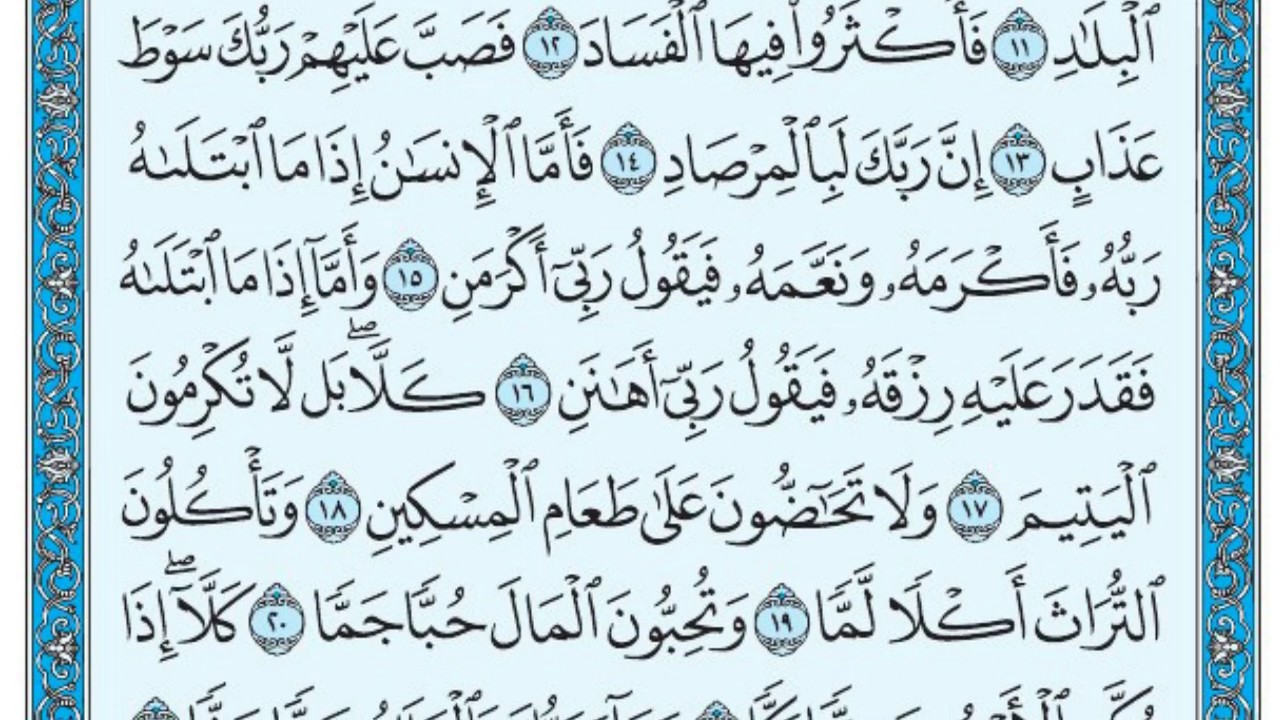 ٱلْبِلَٰدِ ١١ فَأَكْثَرُوا۟ فِيهَا ٱلْفَسَادَ ١٢ فَصَبَّ عَلَيْهِمْ رَبُّكَ سَوْطَ
عَذَابٍ ١٣ إِنَّ رَبَّكَ لَبِٱلْمِرْصَادِ ١٤ فَأَمَّا ٱلْإِنسَٰنُ إِذَا مَا ٱبْتَلَىٰهُ
رَبُّهُۥ فَأَكْرَمَهُۥ وَنَعَّمَهُۥ فَيَقُولُ رَبِّىٓ أَكْرَمَنِ ١٥ وَأَمَّآ إِذَا مَا ٱبْتَلَىٰهُ
فَقَدَرَ عَلَيْهِ رِزْقَهُۥ فَيَقُولُ رَبِّىٓ أَهَٰنَنِ ١٦ كَلَّاۖ بَل لَّا تُكْرِمُونَ
ٱلْيَتِيمَ ١٧ وَلَا تَحَٰٓضُّونَ عَلَىٰ طَعَامِ ٱلْمِسْكِينِ ١٨ وَتَأْكُلُونَ
ٱلتُّرَاثَ أَكْلًا لَّمًّا ١٩ وَتُحِبُّونَ ٱلْمَالَ حُبًّا جَمًّا ٢٠ كَلَّآۖ إِذَا